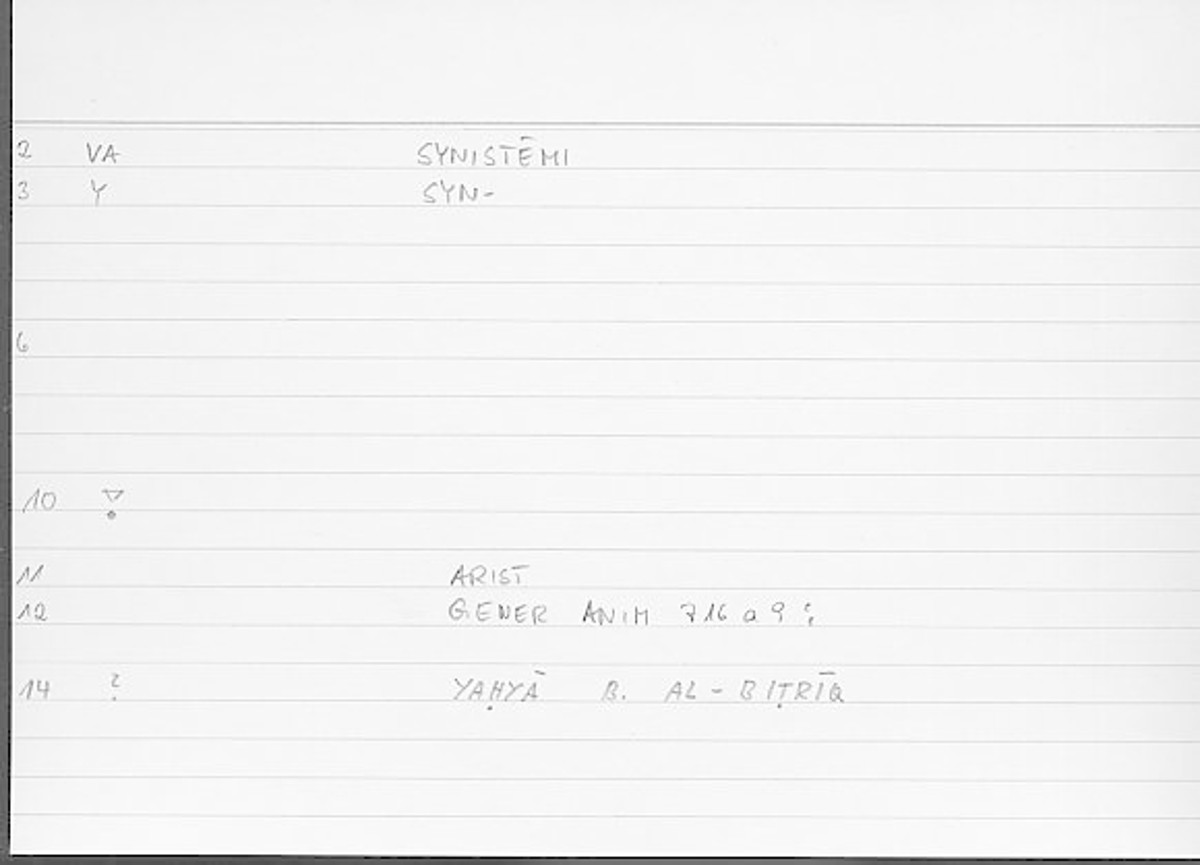 2 VA SYNISTĒMI
3 Y SYN-
6
10
11 ARIST
12 GENER ANIM 716 a 9
14 ? YAḤYĀ B. AL-BIṬRĪQ